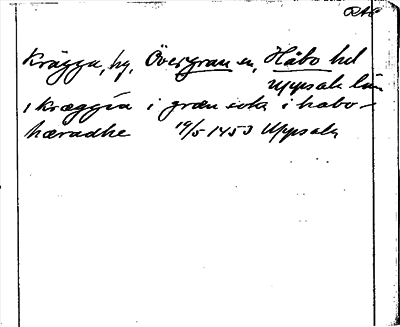 RAÖ
Krägga, by, Övergran sn, Håbo hd
Uppsala län
i kræggia i græn sokn i habo-
hæradhe 19/5 1453 Uppsala